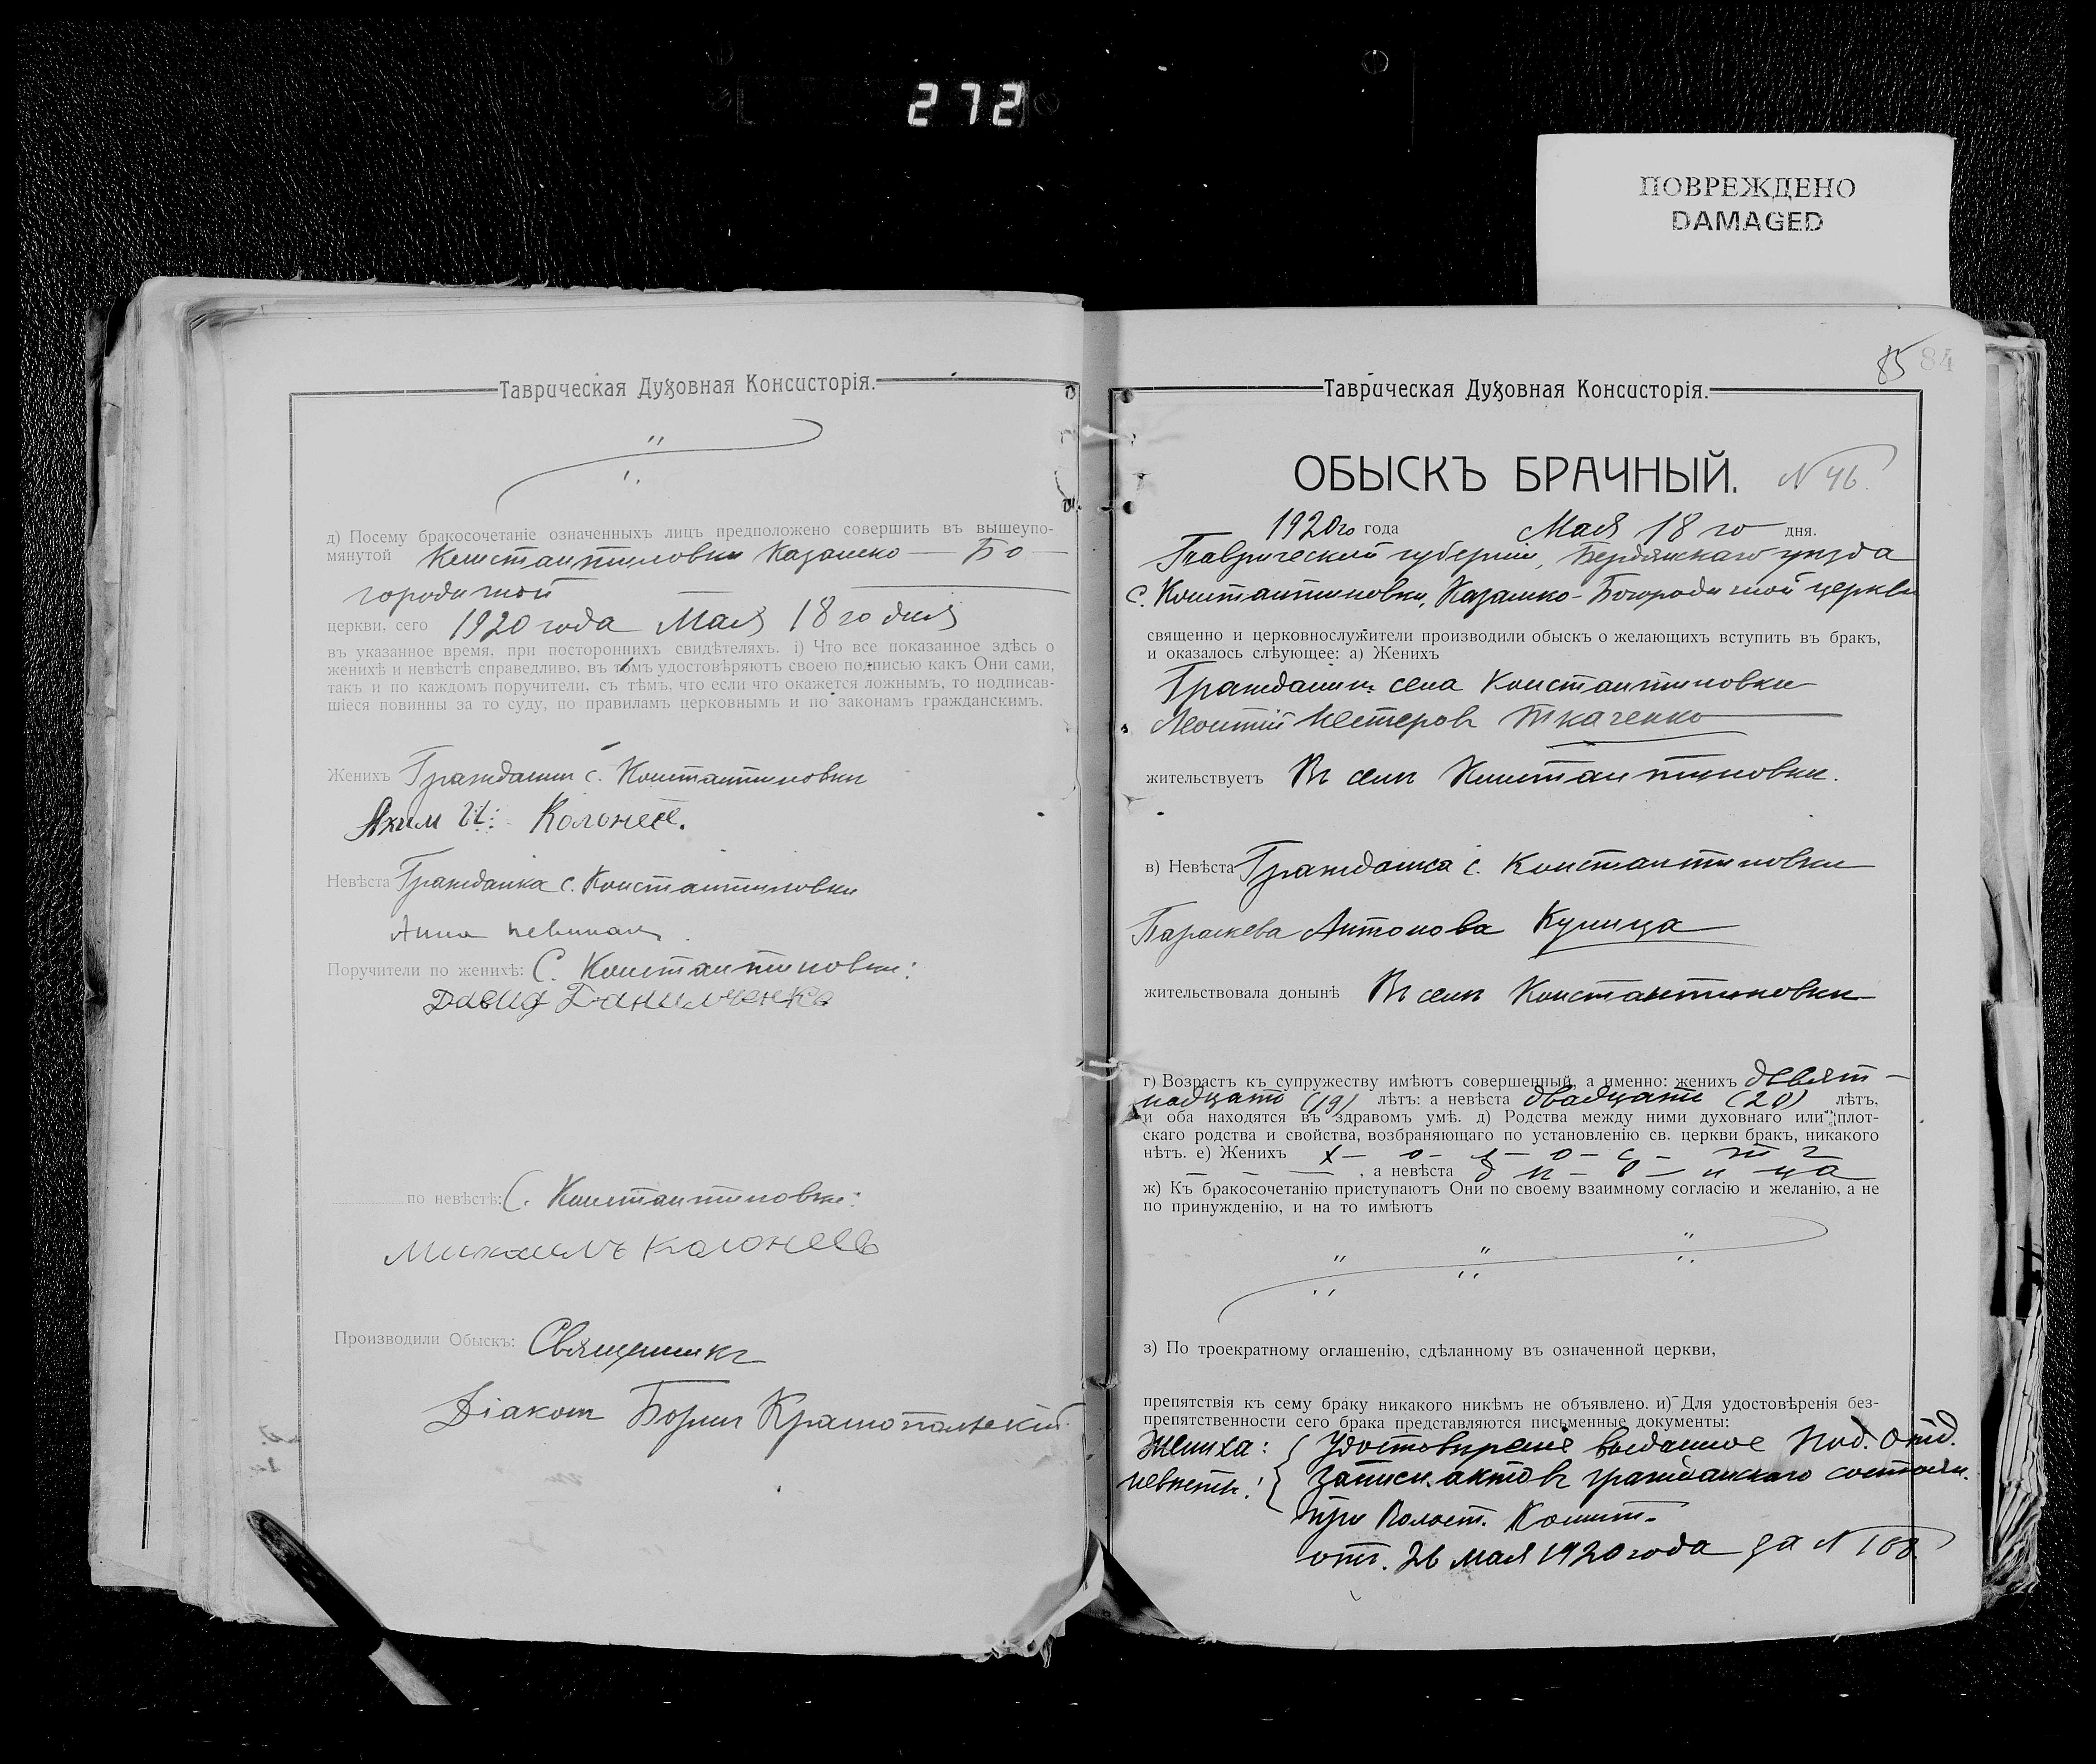 272
ПОВРЕЖДЕНО
DAMAGED
Таврическая Духовная Консисторія.
д) Посему бракосочетаніе означенныхъ лицъ предположено совершить въ вышеупо-
мянутой Константиновки Казанско — Бо —
городичной
церкви, сего 1920 года Мая 18 го дня
въ указанное время, при постороннихъ свидѣтеляхъ. і) Что все показанное здѣсь о
женихѣ и невѣстѣ справедливо, въ томъ удостовѣряютъ своею подписью какъ Они сами,
такъ и по каждомъ поручители, съ тѣмъ, что если что окажется ложнымъ, то подписав-
шіеся повинны за то суду, по правиламъ церковнымъ и по законамъ гражданскимъ.
Женихъ Гражданин с. Константиновки
Яким
Невѣста Гражданка с. Константиновки
Анна
Поручители по женихѣ: С. Константиновки:
Давид Данильченко
по невѣстѣ: С. Константиновки:
Михаилъ
Производили Обыскъ: Священникъ
Діакон Борис Краснопольскій
85 84
Таврическая Духовная Консисторія.
ОБЫСКЪ БРАЧНЫЙ. N 46.
1920го года Мая 18 го дня.
Таврической губерніи, Бердянскаго уезда
с. Константиновки, Казанско-Богородичной церкви
священно и церковнослужители производили обыскъ о желающихъ вступить въ бракъ,
и оказалось слѣующее: а) Женихъ
Гражданинъ села Константиновки
Леонтій Нестеровъ Ткаченко
жительствуетъ Въ селѣ Константиновки.
в) Невѣста Гражданка с. Константиновки
Параскева Антонова Куница
жительствовала донынѣ Въ селѣ Константиновки
г) Возрастъ къ супружеству имѣютъ совершенный, а именно: женихъ девят-
надцати (19) лѣтъ: а невѣста двадцати (20) лѣтъ,
и оба находятся въ здравомъ умѣ. д) Родства между ними духовнаго или плот-
скаго родства и свойства, возбраняющаго по установленію св. церкви бракъ, никакого
нѣтъ. е) Женихъ х — о — л — о — с — т ъ
, а невѣста д ѣ — в — и ца
ж) Къ бракосочетанію приступаютъ Они по своему взаимному согласію и желанію, а не
по принужденію, и на то имѣютъ
з) По троекратному оглашенію, сдѣланному въ означенной церкви,
препятствія къ сему браку никакого никѣмъ не объявлено. и) Для удостовѣренія без-
препятственности сего брака представляются письменные документы:
Жениха: { Удостовѣреніе выданное Под. Отд.
невѣсты: { записи актовъ гражданскаго состоян.
при Волост. Комит.
отъ. 26 мая 1920 года за N